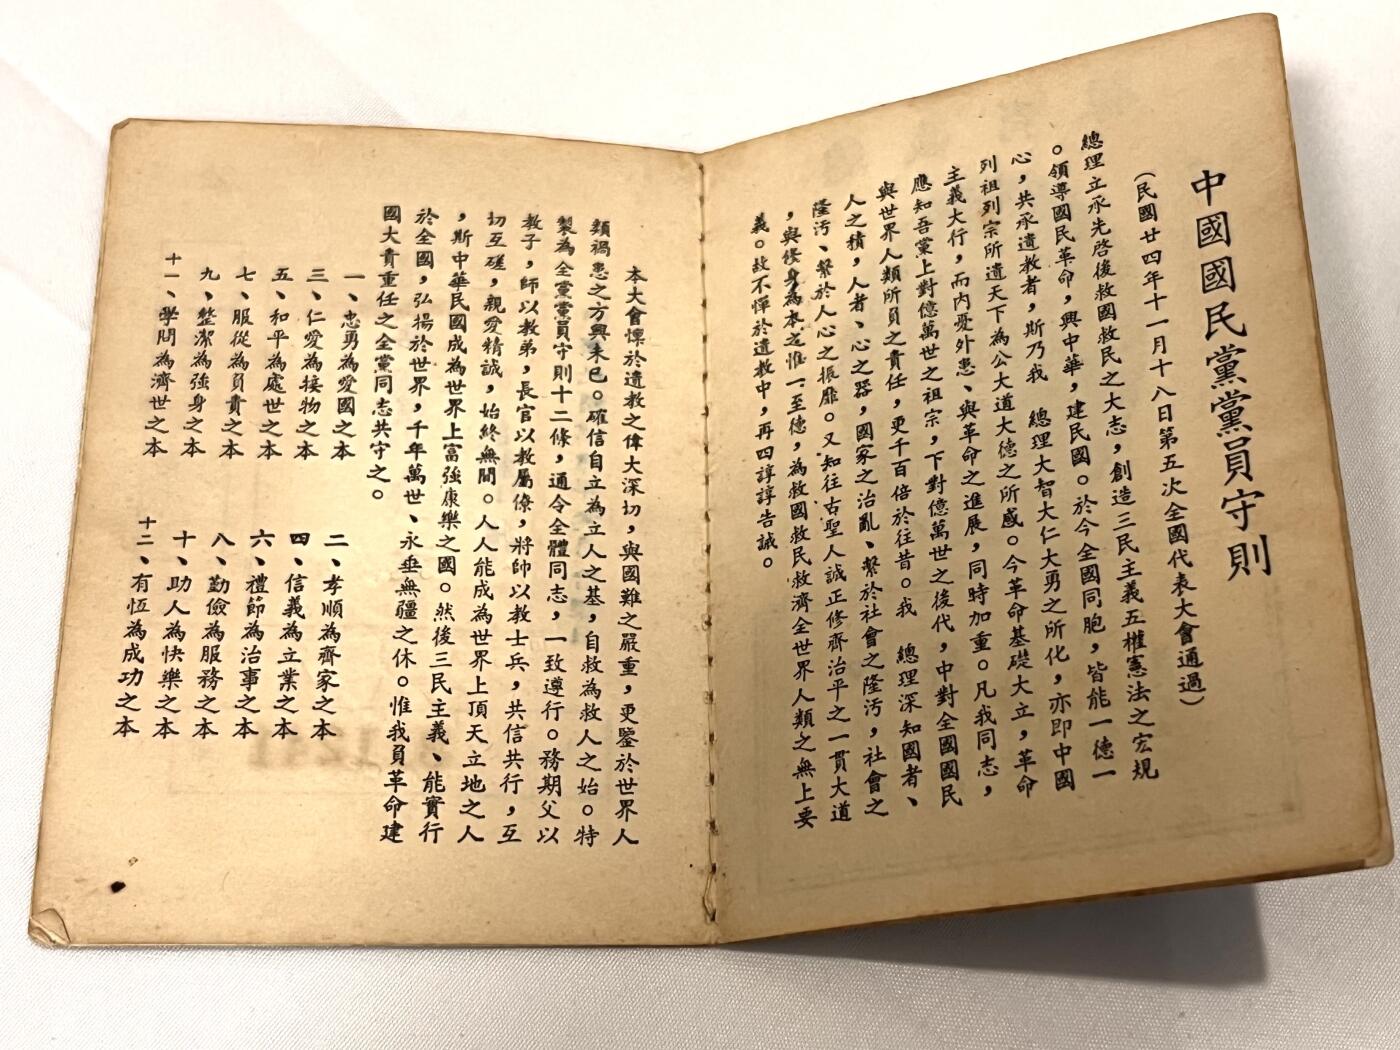 中國國民黨黨員守則
(民國廿四年十一月十八日第五次全國代表大會通過)
總理立承先啓後救國救民之大志,創造三民主義五權憲法之宏規
。領導國民革命,興中華,建民國。於今全國同胞,皆能一德一
心,共承遺教者,斯乃我　總理大智大仁大勇之所化,亦即中國
列祖列宗所遺天下為公大道大德之所感。今革命基礎大立,革命
主義大行,而內憂外患、與革命之進展,同時加重。凡我同志,
應知吾黨上對億萬世之祖宗,下對億萬世之後代,中對全國國民
與世界人類所員之責任,更千百倍於往昔。我　總理深知國者、
人之積,人者、心之器,國家之治亂、繫於社會之隆汚,社會之
隆汚、繫於人心之振靡。又知往古聖人誠正修齊治平之一貫大道
,與修身為本之惟一至德,為救國救民救濟全世界人類之無上要
義。故不憚於遺教中,再四諄諄告誡。
本大會懍於遺教之偉大深切,與國難之嚴重,更鑒於世界人
類禍患之方興未已。確信自立為立人之基,自救為救人之始。特
製為全黨黨員守則十二條,通令全體同志,一致遵行。務期父以
教子,師以教弟,長官以教屬僚,將帥以教士兵,共信共行,互
切互磋,親愛精誠,始終無間。人人能成為世界上頂天立地之人
,斯中華民國成為世界上富強康樂之國。然後三民主義、能實行
於全國,弘揚於世界,千年萬世、永垂無疆之休。惟我員革命建
國大責重任之全黨同志共守之。
一、忠勇為愛國之本
二、孝順為齊家之本
三、仁愛為接物之本
四、信義為立業之本
五、和平為處世之本
六、禮節為治事之本
七、服從為負責之本
八、勤儉為服務之本
九、整潔為強身之本
十、助人為快樂之本
十一、學問為濟世之本
十二、有恆為成功之本